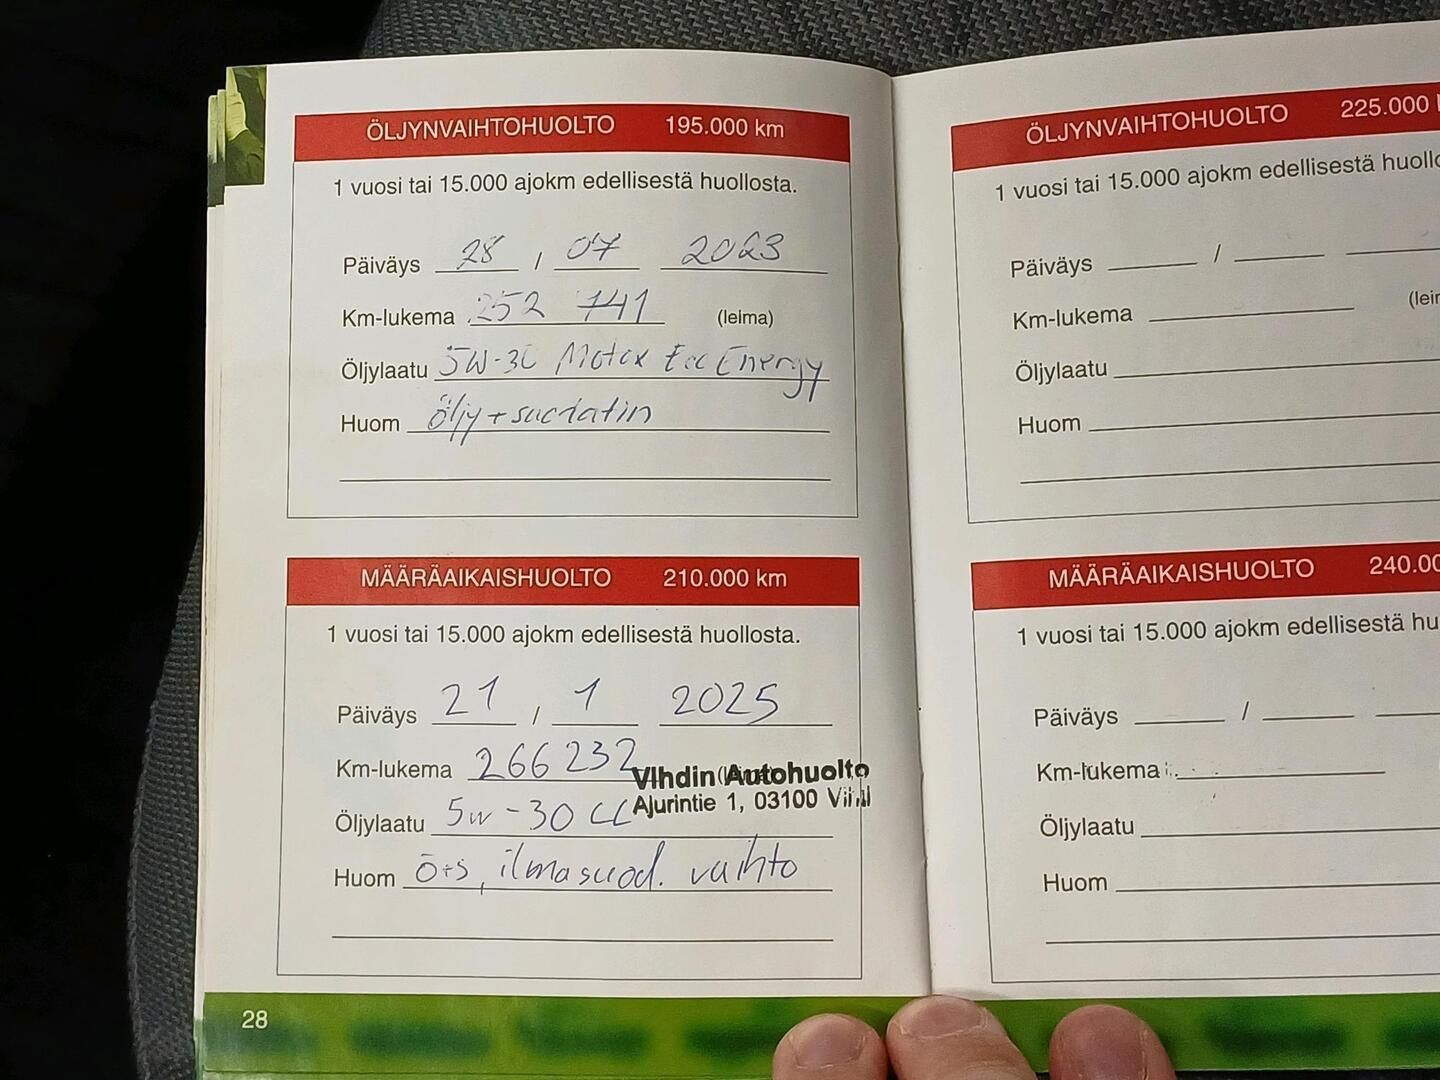 ÖLJYNVAIHTOHUOLTO 195.000 km
1 vuosi tai 15.000 ajokm edellisestä huollosta.
Päiväys 28 / 07 2023
Km-lukema 252 741 (leima)
Öljylaatu 5W-30 Motox Eco Energy
Huom Öljy + suodatin
MÄÄRÄAIKAISHUOLTO 210.000 km
1 vuosi tai 15.000 ajokm edellisestä huollosta.
Päiväys 21 / 1 2025
Km-lukema 266 232 (leima)
Vihdin Autohuolto
Ajurintie 1, 03100 Vihti
Öljylaatu 5w-30 LL
Huom ö+s, ilmasuod. vaihto
28
ÖLJYNVAIHTOHUOLTO 225.000
1 vuosi tai 15.000 ajokm edellisestä
Päiväys /
Km-lukema
Öljylaatu
Huom
MÄÄRÄAIKAISHUOLTO 240.00
1 vuosi tai 15.000 ajokm edellisestä hu
Päiväys /
Km-lukema
Öljylaatu
Huom